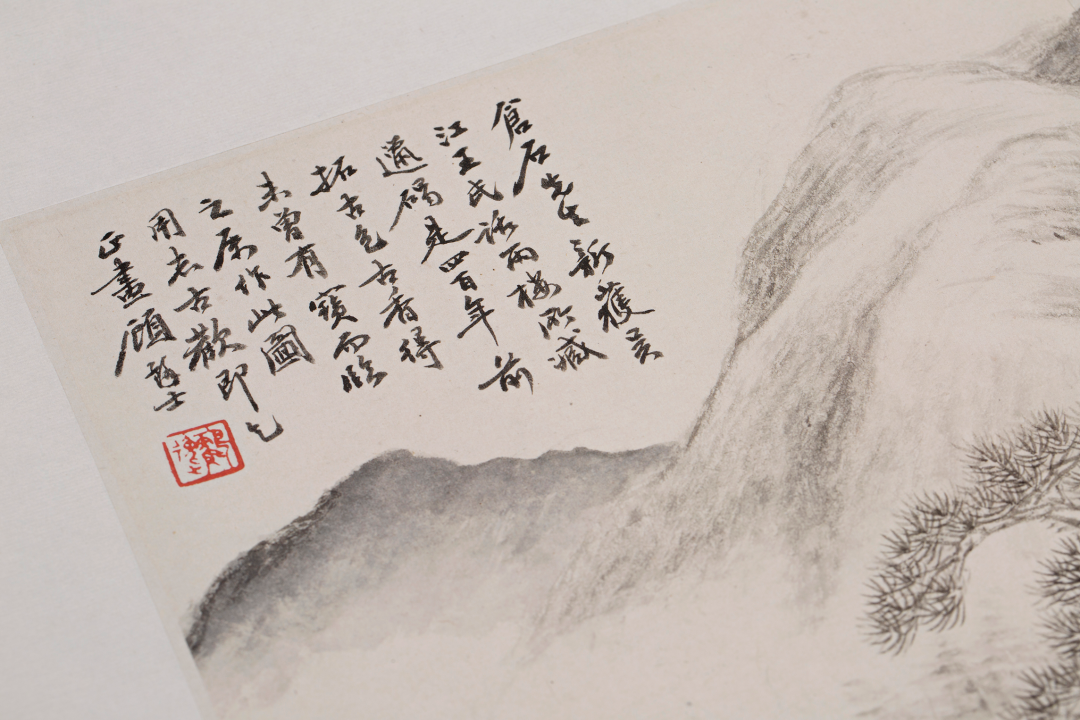 倉石先生新獲吳
江王氏話雨樓所臧
碣是四百年前
拓古色古香得
未曾有寶而臨
之屬作此圖
用志古歡即乞
正畫顧麟士